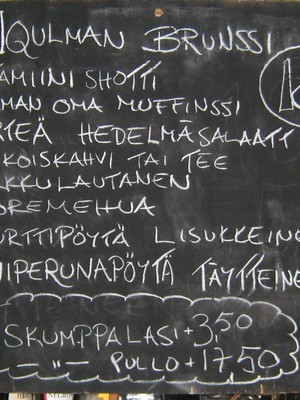 KULMAN BRUNSSI
AMIINI SHOTTI
MAN OMA MUFFINSSI
RTEÄ HEDELMÄSALAATT
KOISKAHVI TAI TEE
KKULAUTANEN
OREMEHUA
URTTIPÖYTÄ LISUKKEINE
IPERUNAPÖYTÄ TÄYTTEINE
SKUMPPALASI +3,50
— " — PULLO +17,50